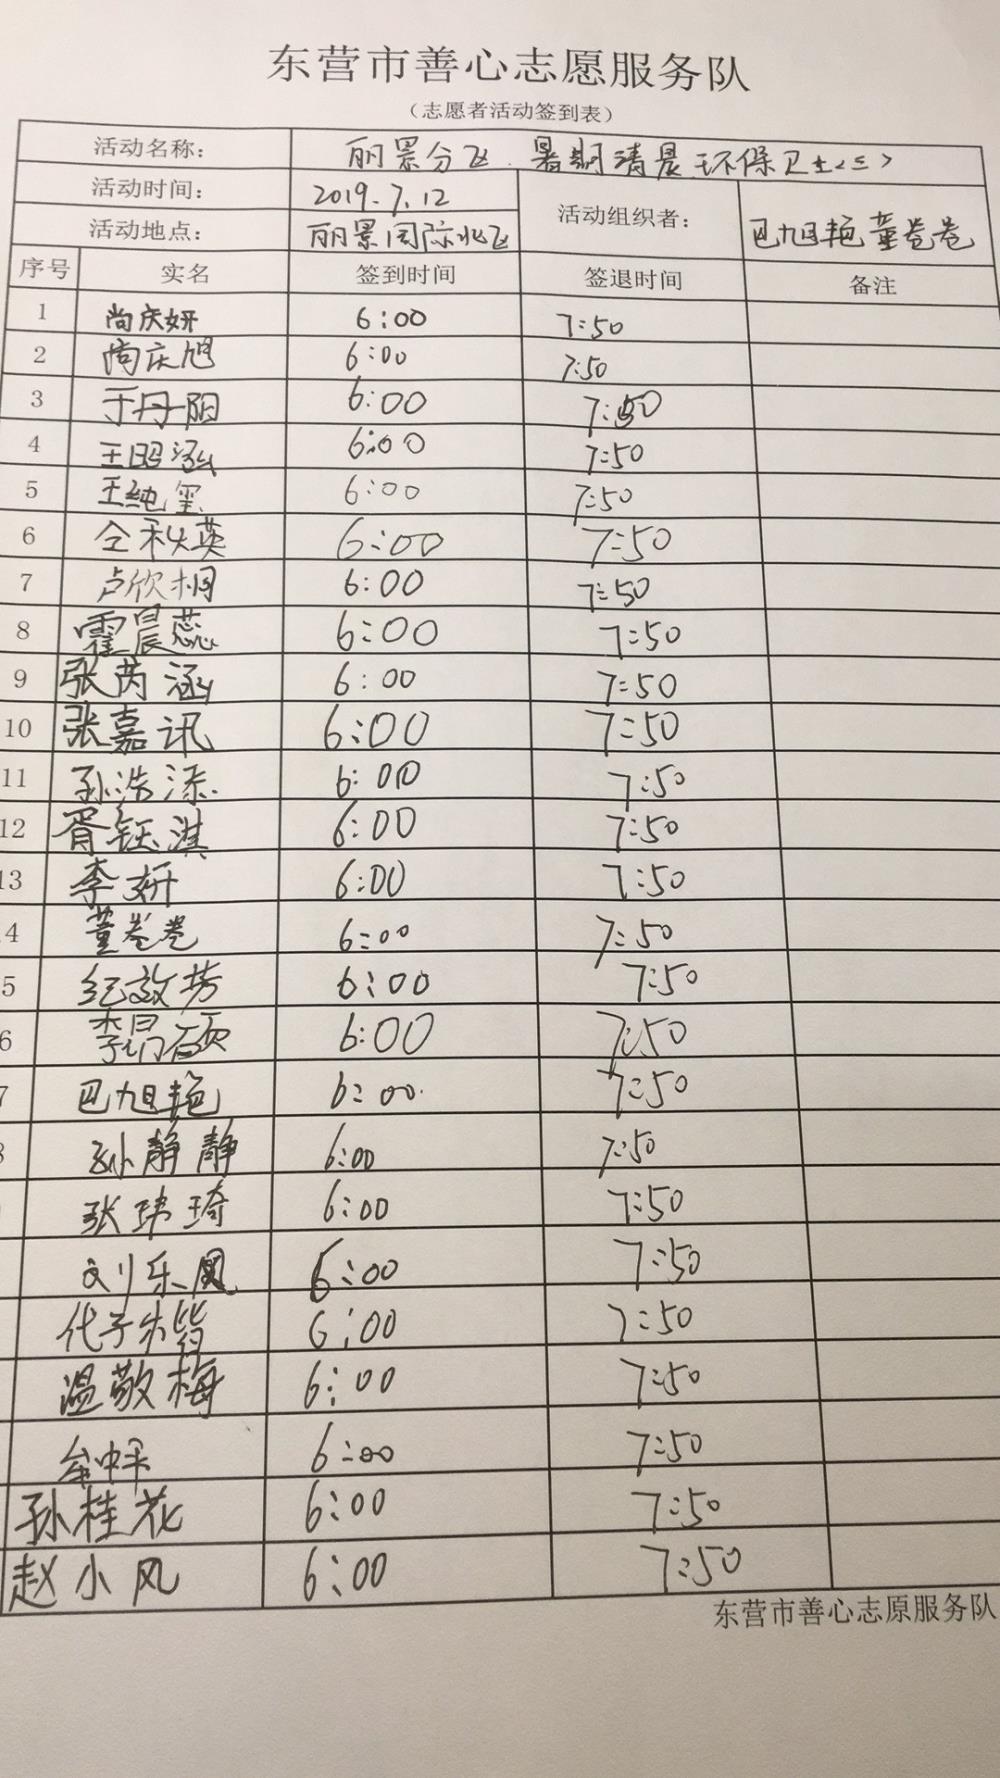 东营市善心志愿服务队
（志愿者活动签到表）
活动名称： 丽景分队 暑期清晨环保卫士<三>
活动时间： 2019.7.12 活动组织者： 巴旭艳 董卷卷
活动地点： 丽景国际北区
序号 实名 签到时间 签退时间 备注
1 尚庆妍 6:00 7:50
2 尚庆旭 6:00 7:50
3 于丹阳 6:00 7:50
4 王昭涵 6:00 7:50
5 王纯玺 6:00 7:50
6 仝秋英 6:00 7:50
7 卢欣桐 6:00 7:50
8 霍晨蕊 6:00 7:50
9 张芮涵 6:00 7:50
10 张嘉讯 6:00 7:50
11 孙浩添 6:00 7:50
12 胥钰淇 6:00 7:50
13 李妍 6:00 7:50
4 董卷卷 6:00 7:50
5 纪效芳 6:00 7:50
6 李昂硕 6:00 7:50
7 巴旭艳 6:00 7:50
孙静静 6:00 7:50
张玮琦 6:00 7:50
刘乐凤 6:00 7:50
代子 6:00 7:50
温敬梅 6:00 7:50
6:00 7:50
孙桂花 6:00 7:50
赵小风 6:00 7:50
东营市善心志原服务队